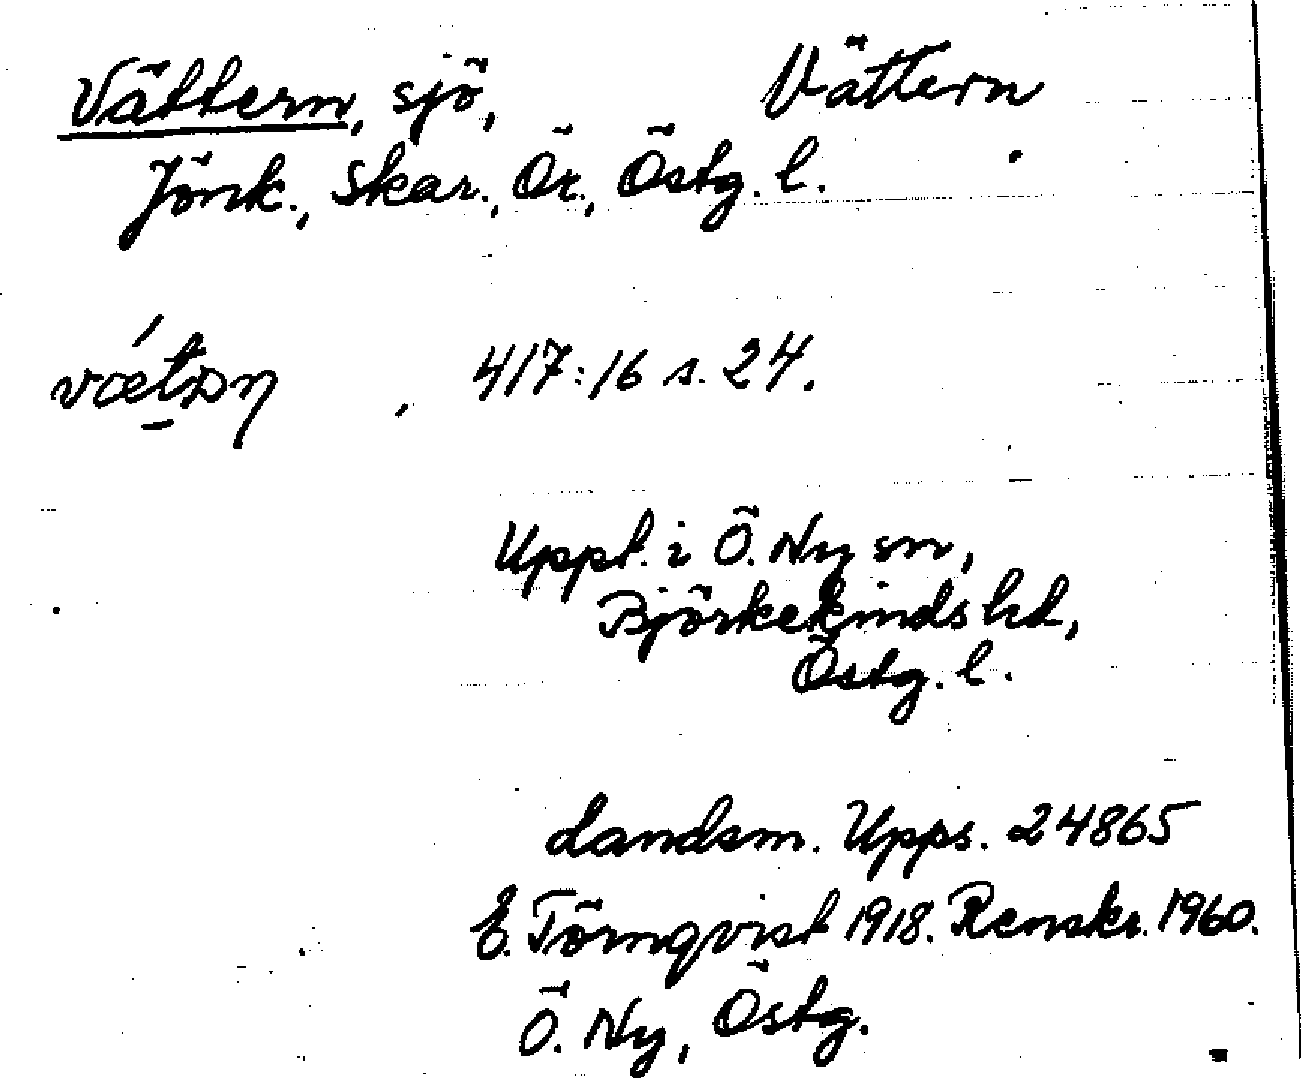 Vättern, sjö, Vättern
Jönk., Skar., Ör., Östg. l.
417:16 s. 24.
Uppt. i Ö. Ny sn,
Björkekinds hd,
Östg. l.
Landsm. Upps. 24865
E. Törnqvist 1918. Renskr. 1960.
Ö. Ny, Östg.